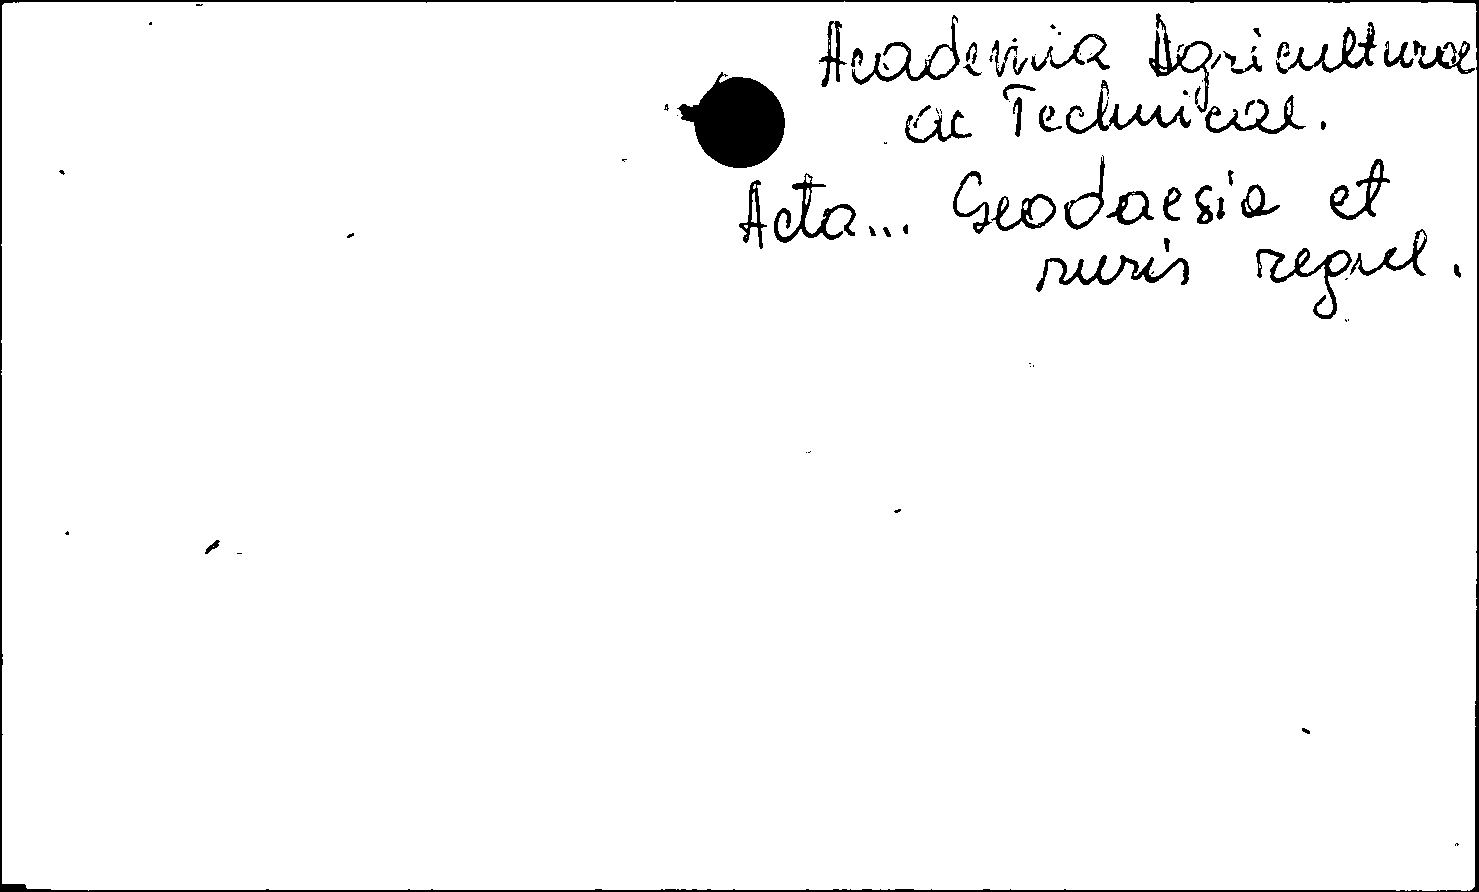 Academia Agriculturae
ac Technicae.
Acta... Geodaesia et
ruris regul.